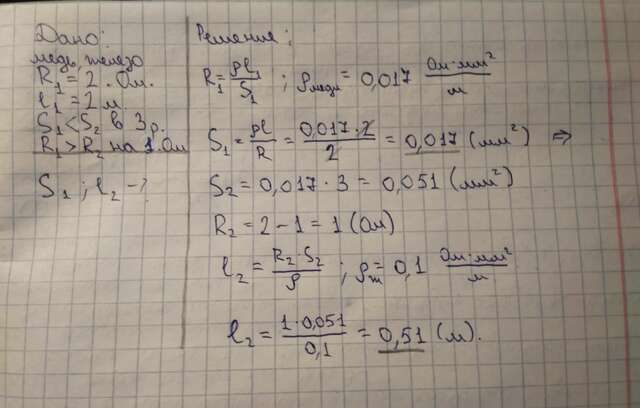 Дано:
медь, железо
R₁ = 2 Ом.
l₁ = 2 м.
S₁ < S₂ в 3 р.
R₁ > R₂ на 1 Ом
S₁ ; l₂ - ?
Решение:
R₁ = ρl₁/S₁ ; ρмеди = 0,017 Ом·мм²/м
S₁ = ρl/R = 0,017·2/2 = 0,017 (мм²) ⇒
S₂ = 0,017 · 3 = 0,051 (мм²)
R₂ = 2 - 1 = 1 (Ом)
l₂ = R₂·S₂/ρ ; ρж = 0,1 Ом·мм²/м
l₂ = 1·0,051/0,1 = 0,51 (м).